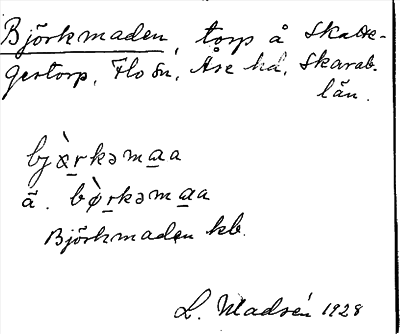 Björkmaden, torp å Skatte-
gestorp, Flo sn, Åse hd, Skarab.
län.
bjæ̀rkəmaa
ä. bø̀rkəmaa
Björkmaden kb.
L. Madsén 1928